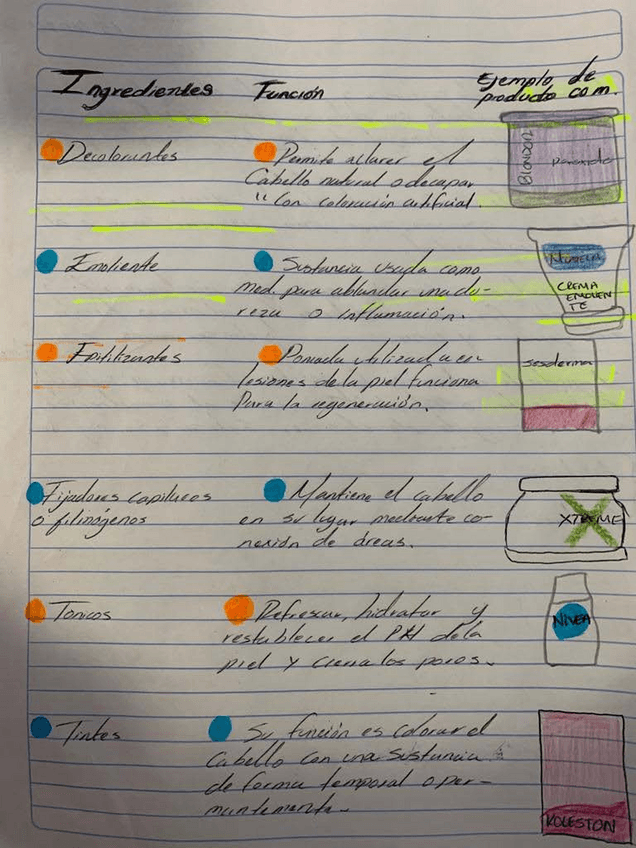 Ingredientes Función Ejemplo de
producto com.
Decolorantes
Permite aclarar el
Cabello natural o decapar
" Con coloración artificial.
BLONDOR
peroxido
Emoliente
Sustancia usada como
med. para ablandar una du-
reza o inflamación.
CREMA
EMOLIEN
TE
Pomada utilizada en
lesiones de la piel funciona
Para la regeneración.
sesderma
Fijadores capilares
o filmógenos
Mantiene el cabello
en su lugar mediante co-
nexión de áreas.
XTREME
Tonicos
Refrescar, hidratar y
restablecer el PH de la
piel y cierra los poros.
NIVEA
Tintes
Su función es colorar el
Cabello con una sustancia
de forma temporal o per-
mantemente.
KOLESTON